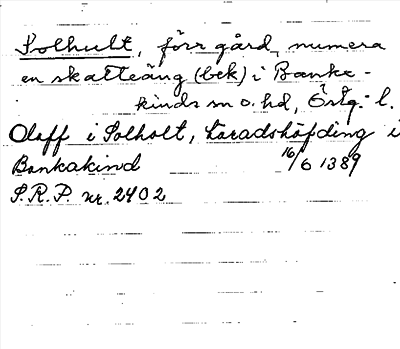 Solhult, förr gård, numera
en skatteäng (bek) i Banke-
kinds sn o. hd, Östg.-l.
Oloff i Solholt, häradshöfding i
Bankakind 16/6 1389
S.R.P. nr. 2402